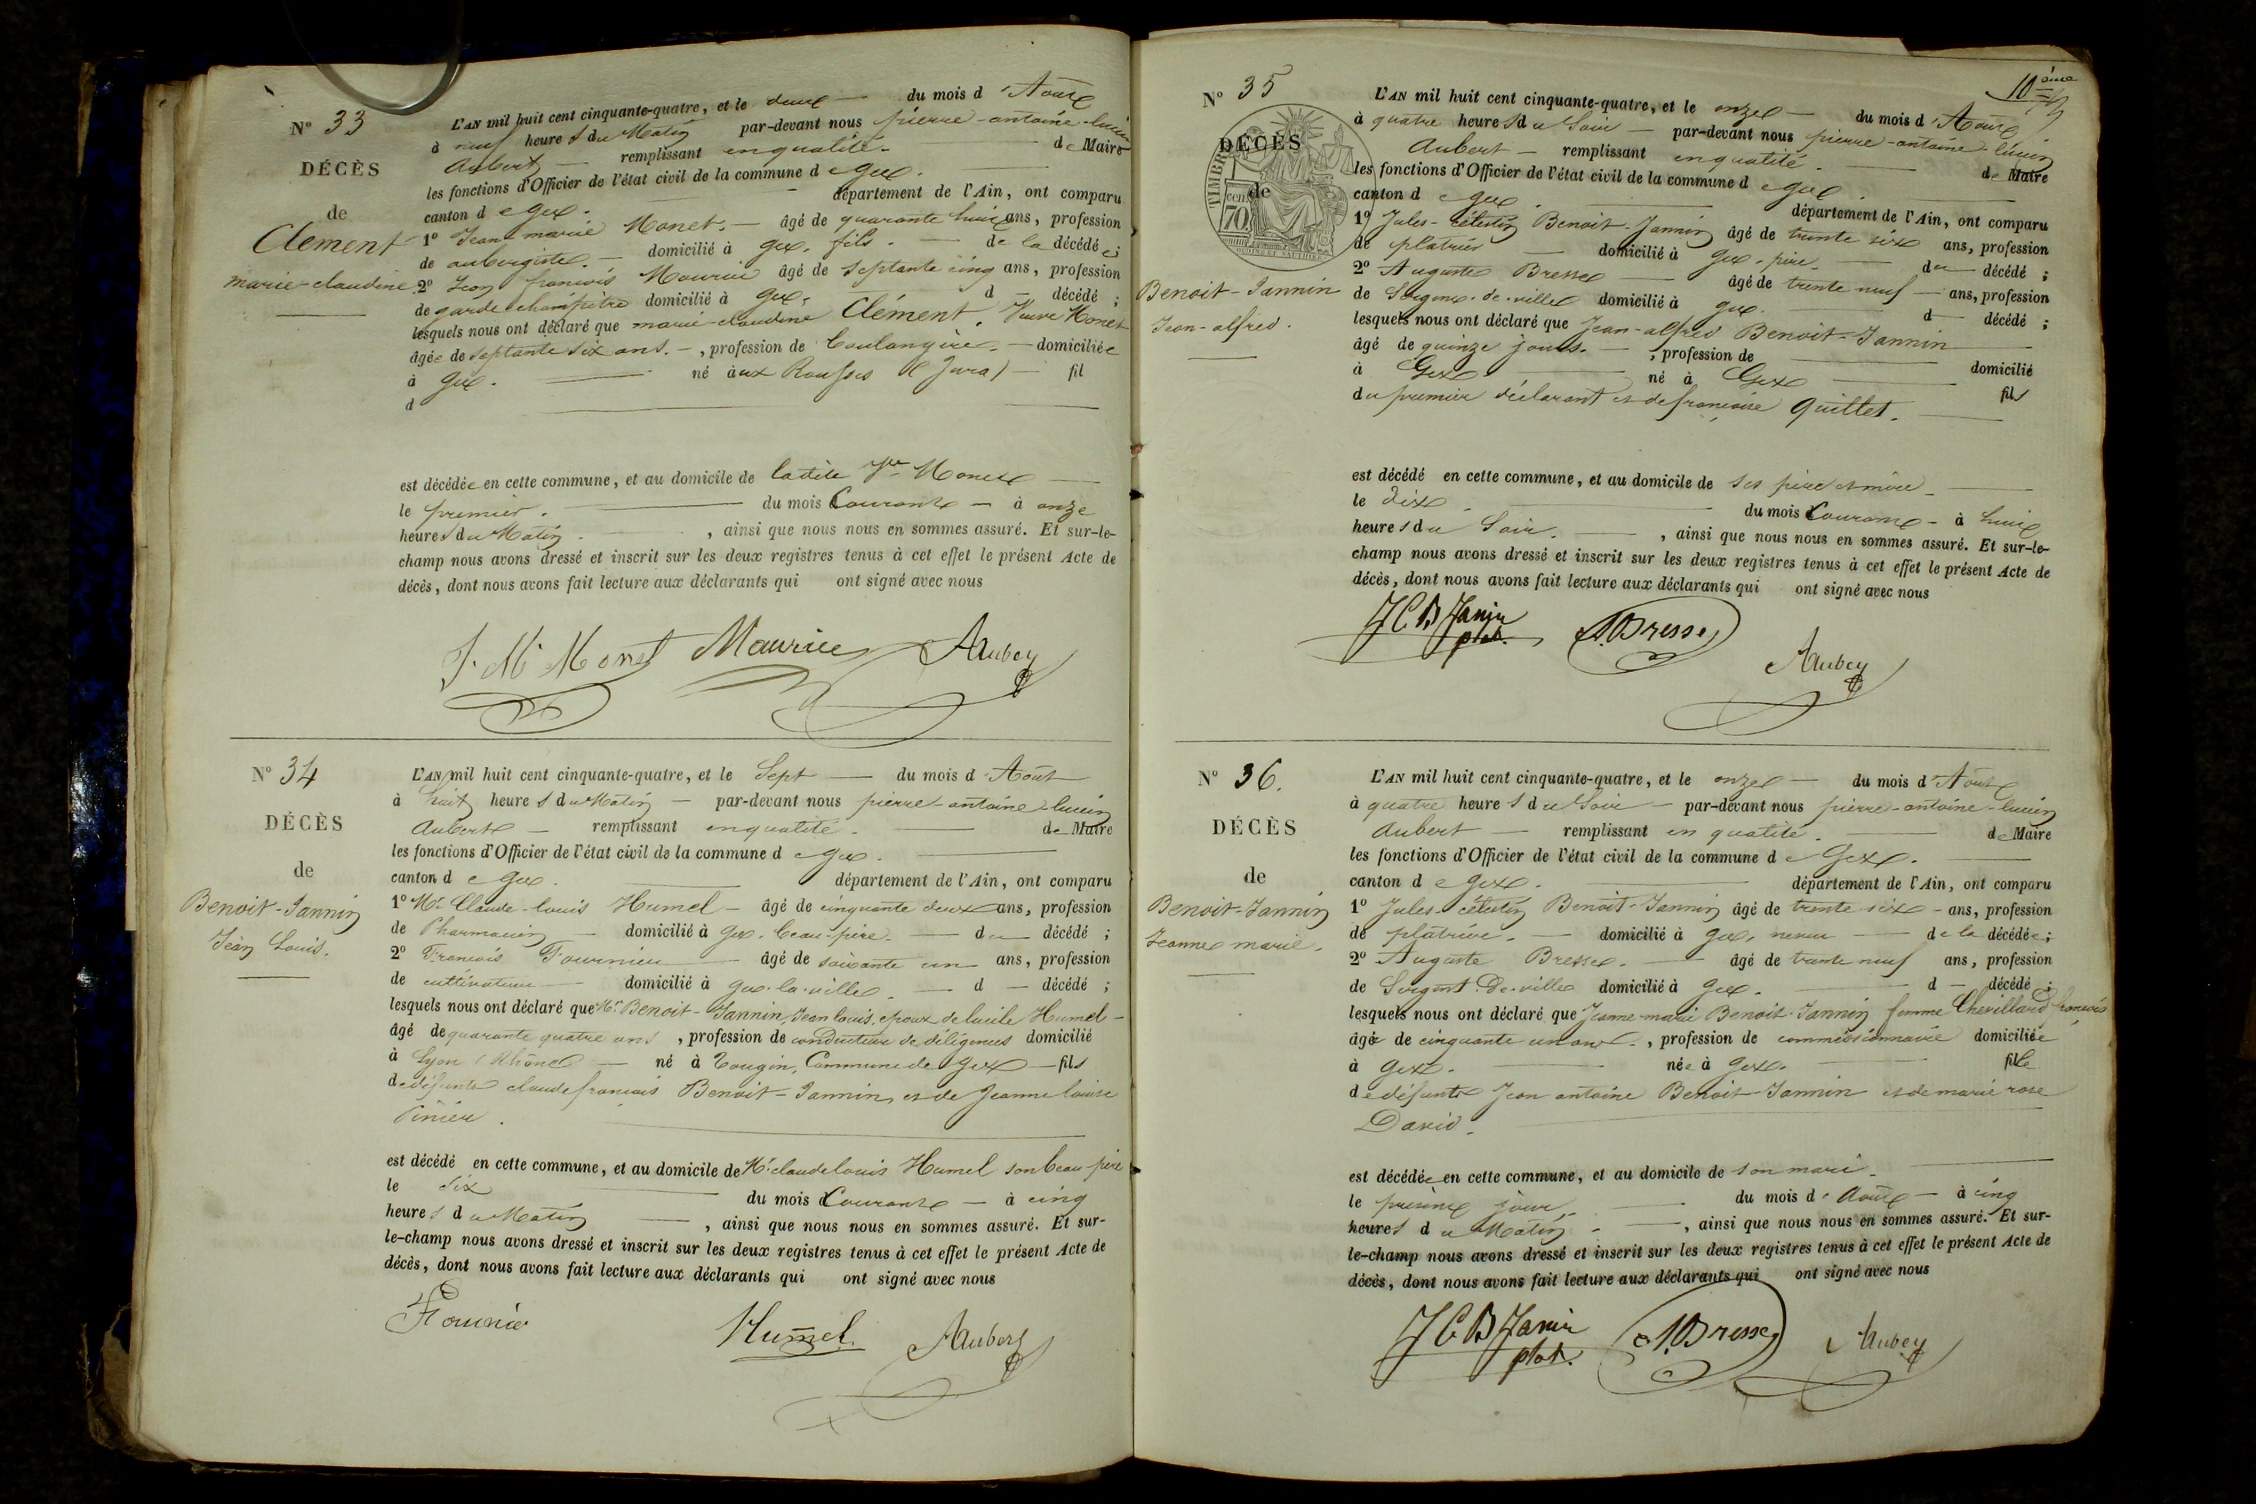 N° 33
DÉCÈS
de
Clement
marie-claudine
L'AN mil huit cent cinquante-quatre, et le deux du mois d'Aout
à neuf heures du Matin par-devant nous pierre-antoine-lucien
Aubert remplissant en qualité de Maire
les fonctions d'Officier de l'état civil de la commune de gex.
canton de gex. département de l'Ain, ont comparu
1° Jean marie Monet. âgé de quarante huit ans, profession
de aubergiste. domicilié à gex. fils. de la décédée;
2° Jean françois Maurice âgé de septante cinq ans, profession
de garde champêtre domicilié à gex. d décédé;
lesquels nous ont déclaré que marie claudine Clément. Veuve Monet
âgée de septante six ans. , profession de boulangère. domiciliée
à gex. né aux Rousses (Jura) fil
d
est décédée en cette commune, et au domicile de ladite Ve Monet
le premier. du mois Courant à onze
heures du Matin. , ainsi que nous nous en sommes assuré. Et sur-le-
champ nous avons dressé et inscrit sur les deux registres tenus à cet effet le présent Acte de
décès, dont nous avons fait lecture aux déclarants qui ont signé avec nous
J. M. Monet Maurice AAubert
N° 34
DÉCÈS
de
Benoit-Jannin
Jean Louis.
L'AN mil huit cent cinquante-quatre, et le Sept du mois d'Aout
à huit heures du Matin par-devant nous pierre-antoine-lucien
Aubert remplissant en qualité. de Maire
les fonctions d'Officier de l'état civil de la commune de gex.
canton de gex. département de l'Ain, ont comparu
1° Mr Claude-louis Humel âgé de cinquante deux ans, profession
de Pharmacien domicilié à gex. beau-père. du décédé;
2° François Fournier âgé de soixante un ans, profession
de cultivateur domicilié à gex-la-ville. d décédé;
lesquels nous ont déclaré que Mr Benoit-Jannin, Jean louis, epoux de lucile Humel
âgé de quarante quatre ans , profession de conducteur de diligences domicilié
à Lyon (Rhône) né à Tougin, Commune de Gex fils
de défunts claude françois Benoit-Jannin, et de Jeanne louise
est décédé en cette commune, et au domicile de Mr claude louis Humel son beau père
le six du mois Courant à cinq
heures du Matin , ainsi que nous nous en sommes assuré. Et sur-
le-champ nous avons dressé et inscrit sur les deux registres tenus à cet effet le présent Acte de
décès, dont nous avons fait lecture aux déclarants qui ont signé avec nous
Fournier Humel AAubert
10ème
N° 35
DÉCÈS
de
TIMBRE
70
Benoit-Jannin
Jean-alfred.
L'AN mil huit cent cinquante-quatre, et le onze du mois d'Aout
à quatre heures du Soir par-devant nous pierre-antoine-lucien
Aubert remplissant en qualité de Maire
les fonctions d'Officier de l'état civil de la commune de gex
canton de gex. département de l'Ain, ont comparu
1° Jules-célestin Benoit-Jannin âgé de trente six ans, profession
de platrier domicilié à gex. père. du décédé;
2° Auguste Bresse âgé de trente neuf ans, profession
de Sergent-de-ville domicilié à gex. d décédé;
lesquels nous ont déclaré que Jean-alfred Benoit-Jannin
âgé de quinze jours. , profession de domicilié
à Gex né à Gex fils
du premier déclarant et de françoise Quillet.
est décédé en cette commune, et au domicile de ses père et mère
le dix. du mois Courant à huit
heures du Soir. , ainsi que nous nous en sommes assuré. Et sur-le-
champ nous avons dressé et inscrit sur les deux registres tenus à cet effet le présent Acte de
décès, dont nous avons fait lecture aux déclarants qui ont signé avec nous
J C B Janin
plat. A. Bresse AAubert
N° 36.
DÉCÈS
de
Benoit-Jannin
Jeanne marie.
L'AN mil huit cent cinquante-quatre, et le onze du mois d'Aout
à quatre heures du Soir par-devant nous pierre-antoine-lucien
Aubert remplissant en qualité. de Maire
les fonctions d'Officier de l'état civil de la commune de Gex.
canton de gex. département de l'Ain, ont comparu
1° Jules-célestin Benoit-Jannin âgé de trente six ans, profession
de platrier. domicilié à gex, neveu de la décédée;
2° Auguste Bresse. âgé de trente neuf ans, profession
de Sergent-De-ville domicilié à gex. d décédé;
lesquels nous ont déclaré que Jeanne-marie Benoit-Jannin femme Chevillard françois
âgée de cinquante un ans. , profession de commissionnaire domiciliée
à gex. née à gex. fille
de défunts Jean antoine Benoit-Jannin et de marie rose
David.
est décédée en cette commune, et au domicile de son mari.
le présent jour. du mois d'Aout à cinq
heures du Matin. , ainsi que nous nous en sommes assuré. Et sur-
le-champ nous avons dressé et inscrit sur les deux registres tenus à cet effet le présent Acte de
décès, dont nous avons fait lecture aux déclarants qui ont signé avec nous
J C B Janin
plat. A. Bresse AAubert